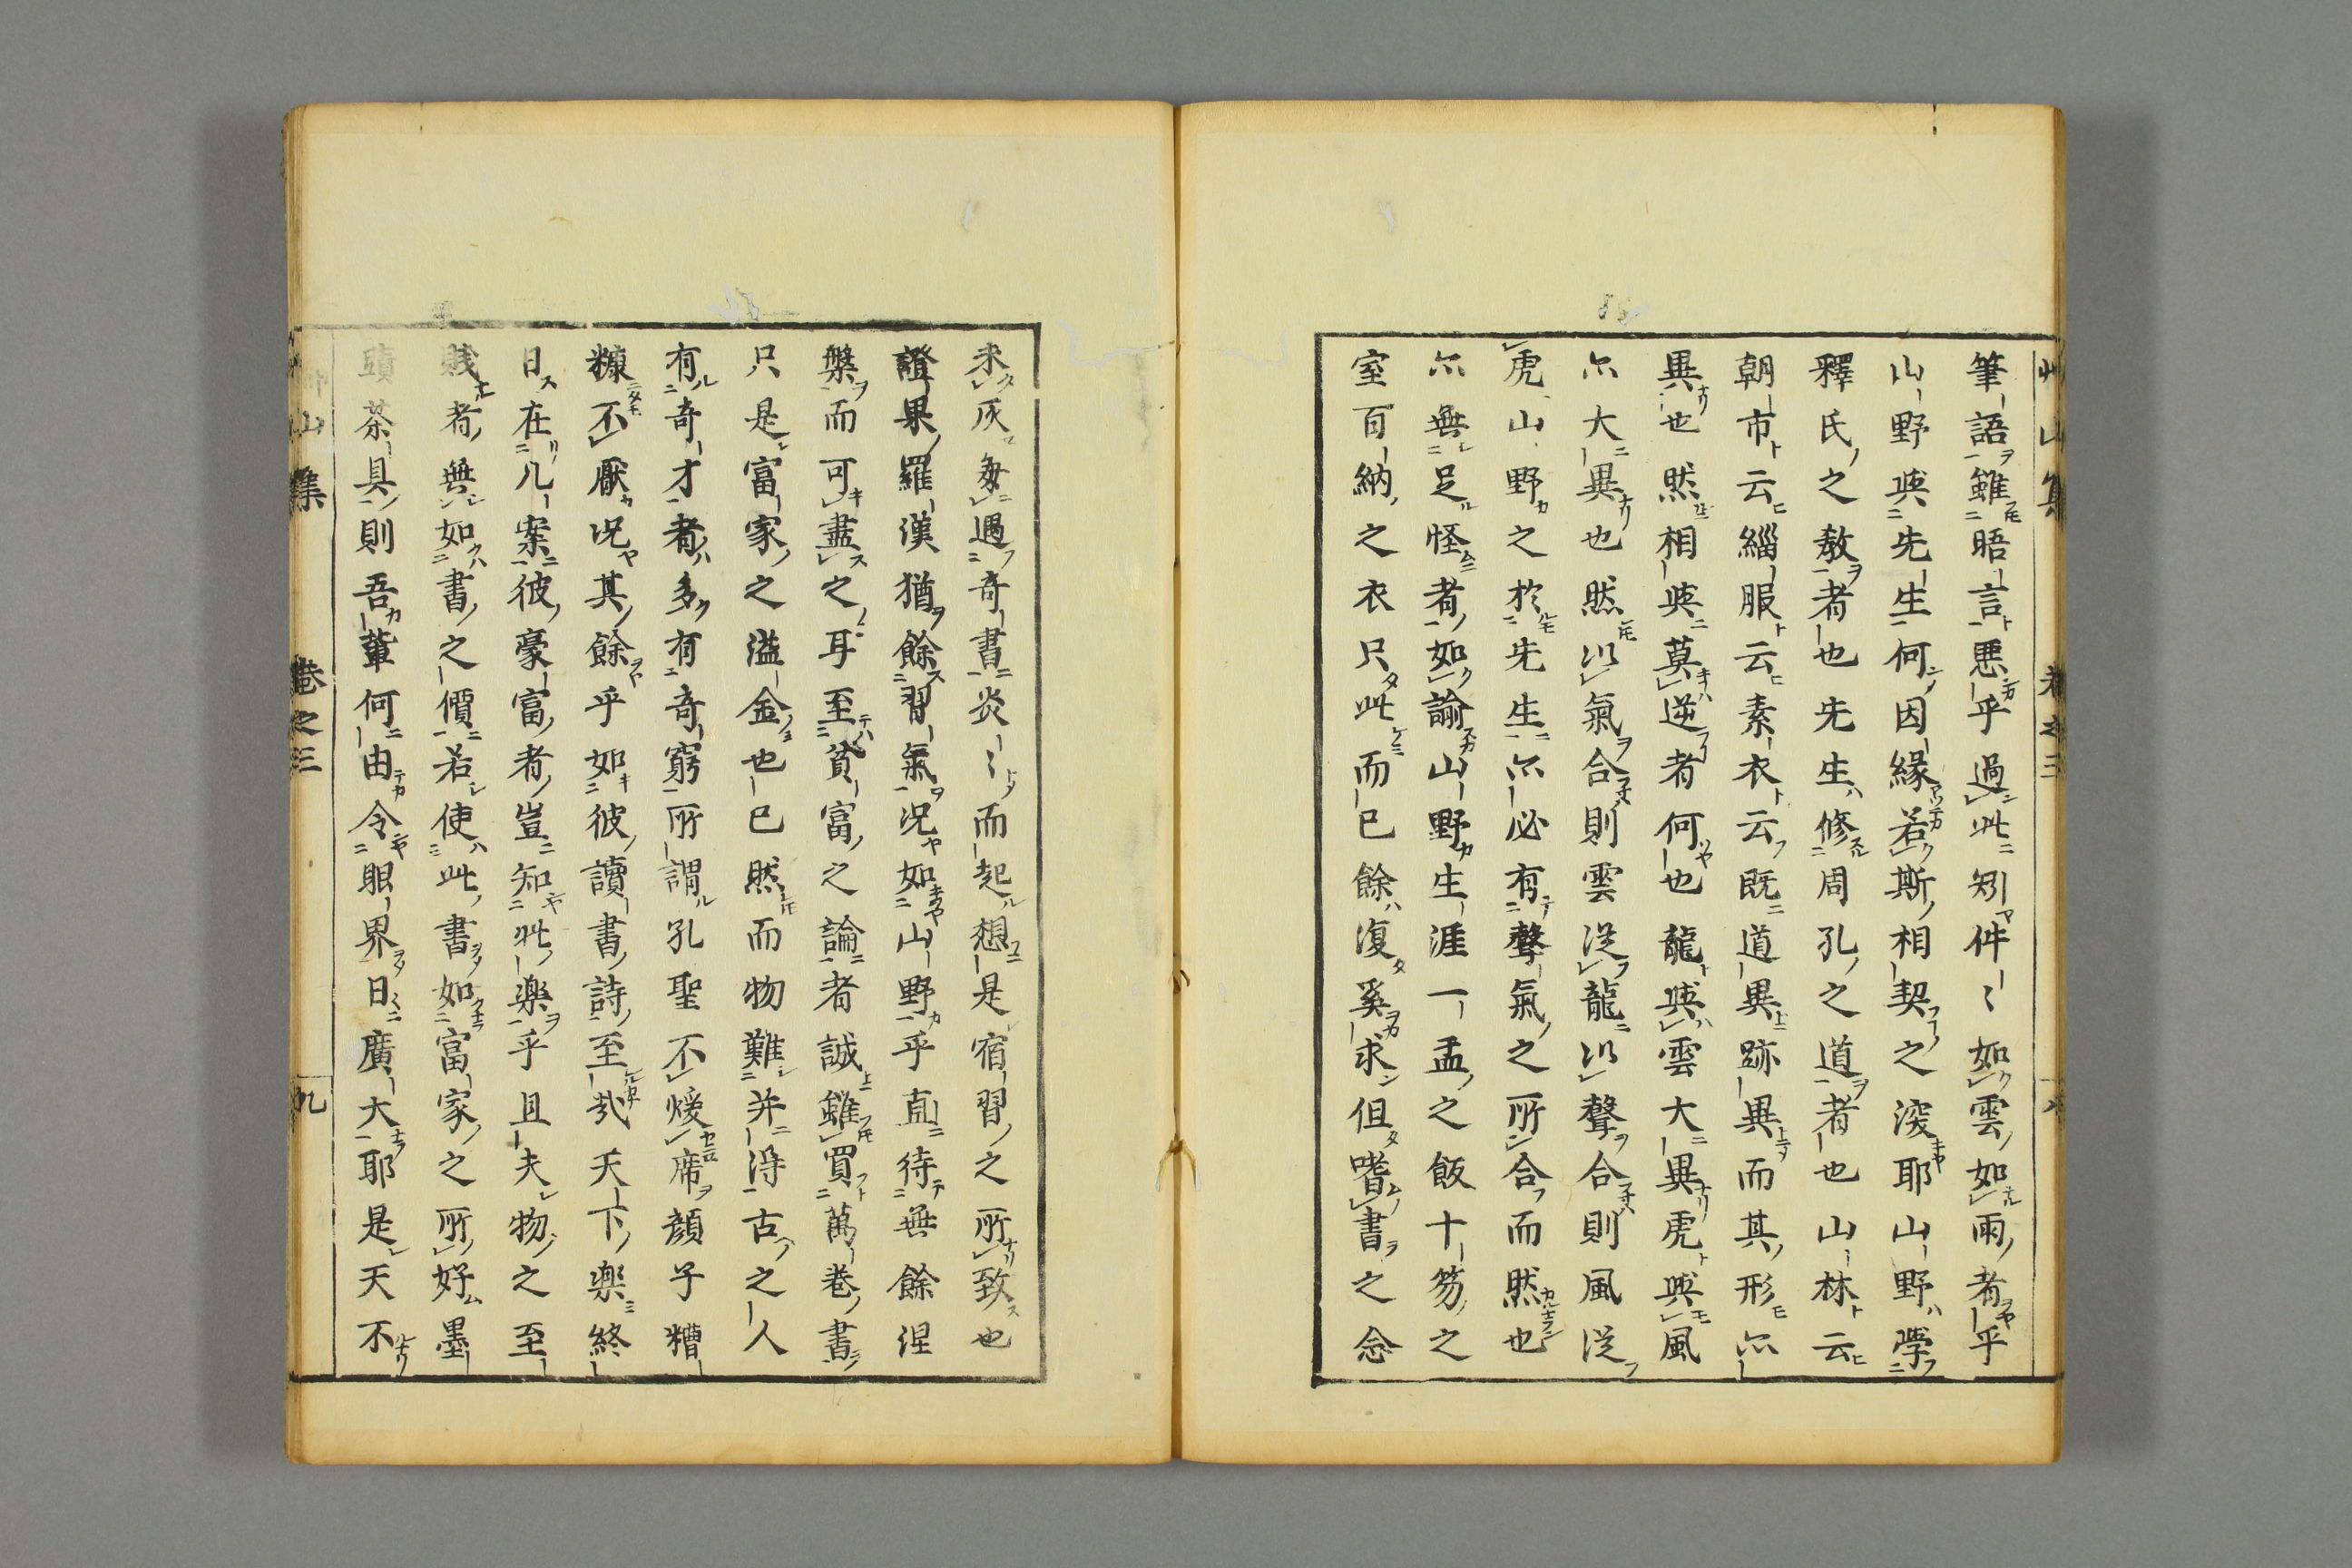 筆語雖晤言悪乎過此矧件〻如雲如雨者乎
山野與先生何因縁若斯相契之深耶山野學
釋氏之教者也先生修周孔之道者也山林云
朝市云緇服云素衣云既道異跡異而其形亦
異也然相與莫逆者何也龍與雲大異虎與風
亦大異也然以氣合則雲從龍以聲合則風從
虎山野之於先生亦必有聲氣之所合而然也
亦無足怪者如諭山野生涯一盂之飯十笏之
室百納之衣只此而已餘復奚求但嗜書之念
未灰每遇奇書炎〻而起想是宿習之所致也
證果羅漢猶餘習氣况如山野乎直待無餘涅
槃而可盡之耳至貧富之論者誠雖買萬巻書
只是富家之溢金也已然而物難并得古之人
有奇才者多有奇窮所謂孔聖不煖席顔子糟
糠不厭况其餘乎如彼讀書詩至哉天下樂終
日在几案彼豪富者豈知此樂乎且夫物之至
賎者無如書之價若使此書如富家之所好墨
蹟茶具則吾輩何由令眼界日廣大耶是天不
艸山集 巻之三 九